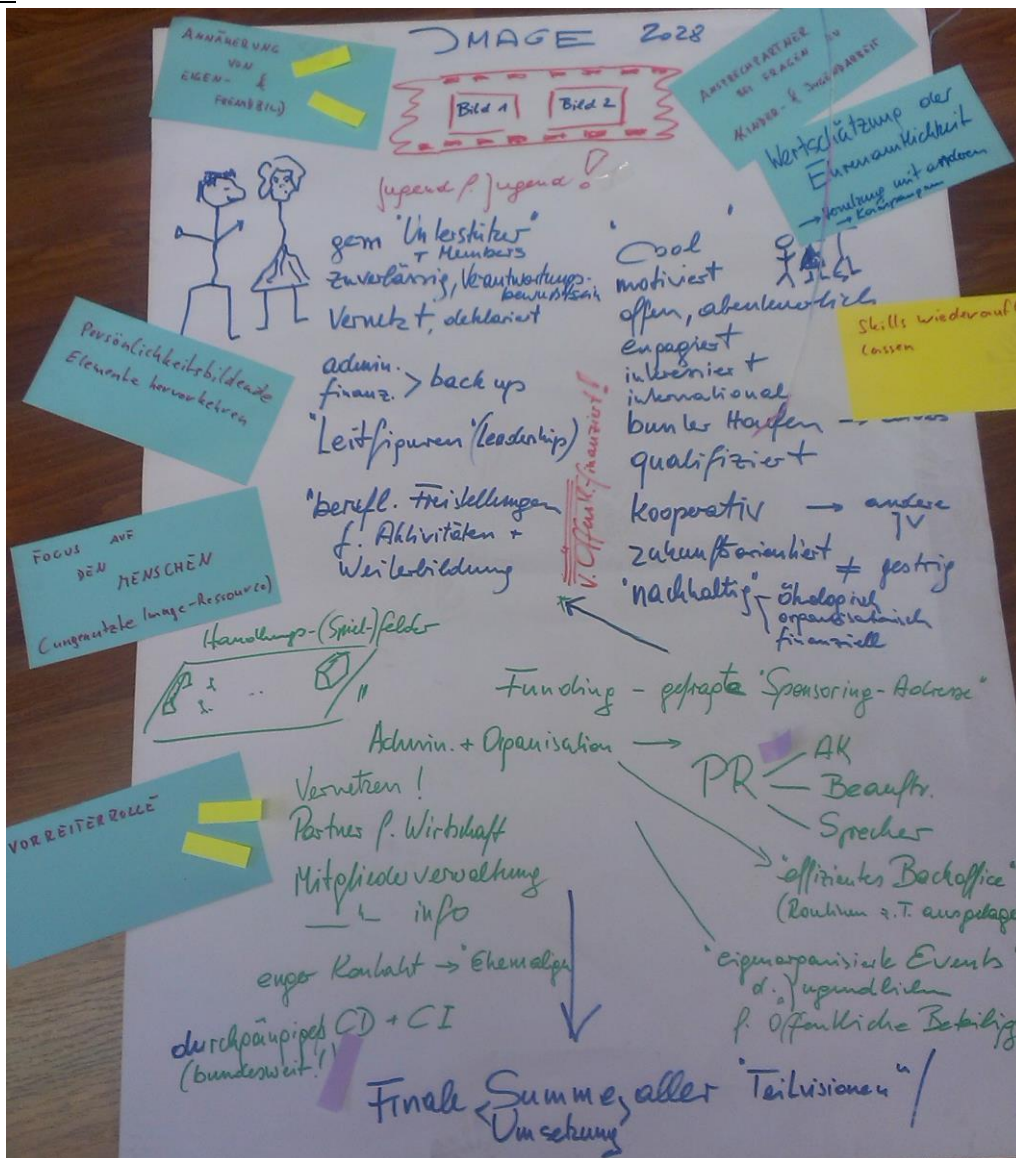 IMAGE 2028
ANNÄHERUNG
VON
EIGEN- &
FREMDBILD
ANSPRECHPARTNER
BEI FRAGEN
KINDER- & JUGENDARBEIT
Bild 1
Bild 2
Wertschätzung der
Ehrenamtlichkeit
→ Vernetzung mit anderen
→ Kampagnen
Jugend f. Jugend!
gem "Unterstützer"
+ Members
zuverlässig, Verantwortungs-
bewusstsein
Vernetzt, deklariert
admin.
finanz. > back up
"Leitfiguren" (Leadership)
"berufl. Freistellungen
f. Aktivitäten +
Weiterbildung
"Cool"
motiviert
offen, abenteuerlich
engagiert
interessiert +
international
bunter Haufen →
qualifiziert
kooperativ → andere
JV
zukunftsorientiert ≠ gestrig
"nachhaltig" - ökologisch
organisatorisch
finanziell
v. Öffentl. finanziert!
Skills wiederauf
lassen
Persönlichkeitsbildende
Elemente hervorkehren
FOCUS AUF
DEN
MENSCHEN
(ungenutzte Image-Ressource)
Handlungs-(Spiel-)felder
Funding - gefragte "Sponsoring-Adresse"
Admin. + Organisation →
PR
AK
Beauftr.
Sprecher
Vernetzen!
Partner f. Wirtschaft
Mitgliederverwaltung
—"— info
VORREITERROLLE
"effizientes Backoffice"
(Routinen z.T. ausgelage
enger Kontakt → "Ehemalige
"eigenorganisierte Events"
d. Jugendlichen
f. öffentliche Beteilig
durchgängiges CD + CI
(bundesweit!)
Finale <Summe> aller "Teilvisionen"
Umsetzung